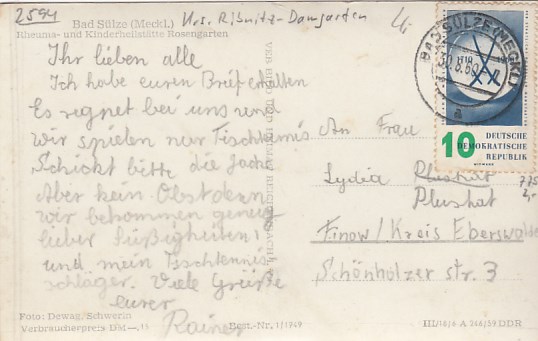 2594
Bad Sülze (Meckl.) Krs. Ribnitz-Damgarten
Rheuma- und Kinderheilstätte Rosengarten
Ihr lieben alle
Ich habe euren Brief erhalten
Es regnet bei uns und
wir spielen nur Tischtennis
Schickt bitte die Jacke
Aber kein Obst denn
wir bekommen genug
lieber Süßigkeiten!
und mein Tischtennis
schläger. Viele Grüße
eurer
Rainer
Foto: Dewag, Schwerin
Verbraucherpreis DM —,15
Best.-Nr. 1/1949
BAD SÜLZE (MECKL)
a
10 DEUTSCHE
DEMOKRATISCHE
REPUBLIK
An Frau
Lydia
Plushat
Finow/Kreis Eberswalde
Schönholzer str. 3
775
2,-
III/18/6 A 266/59 DDR